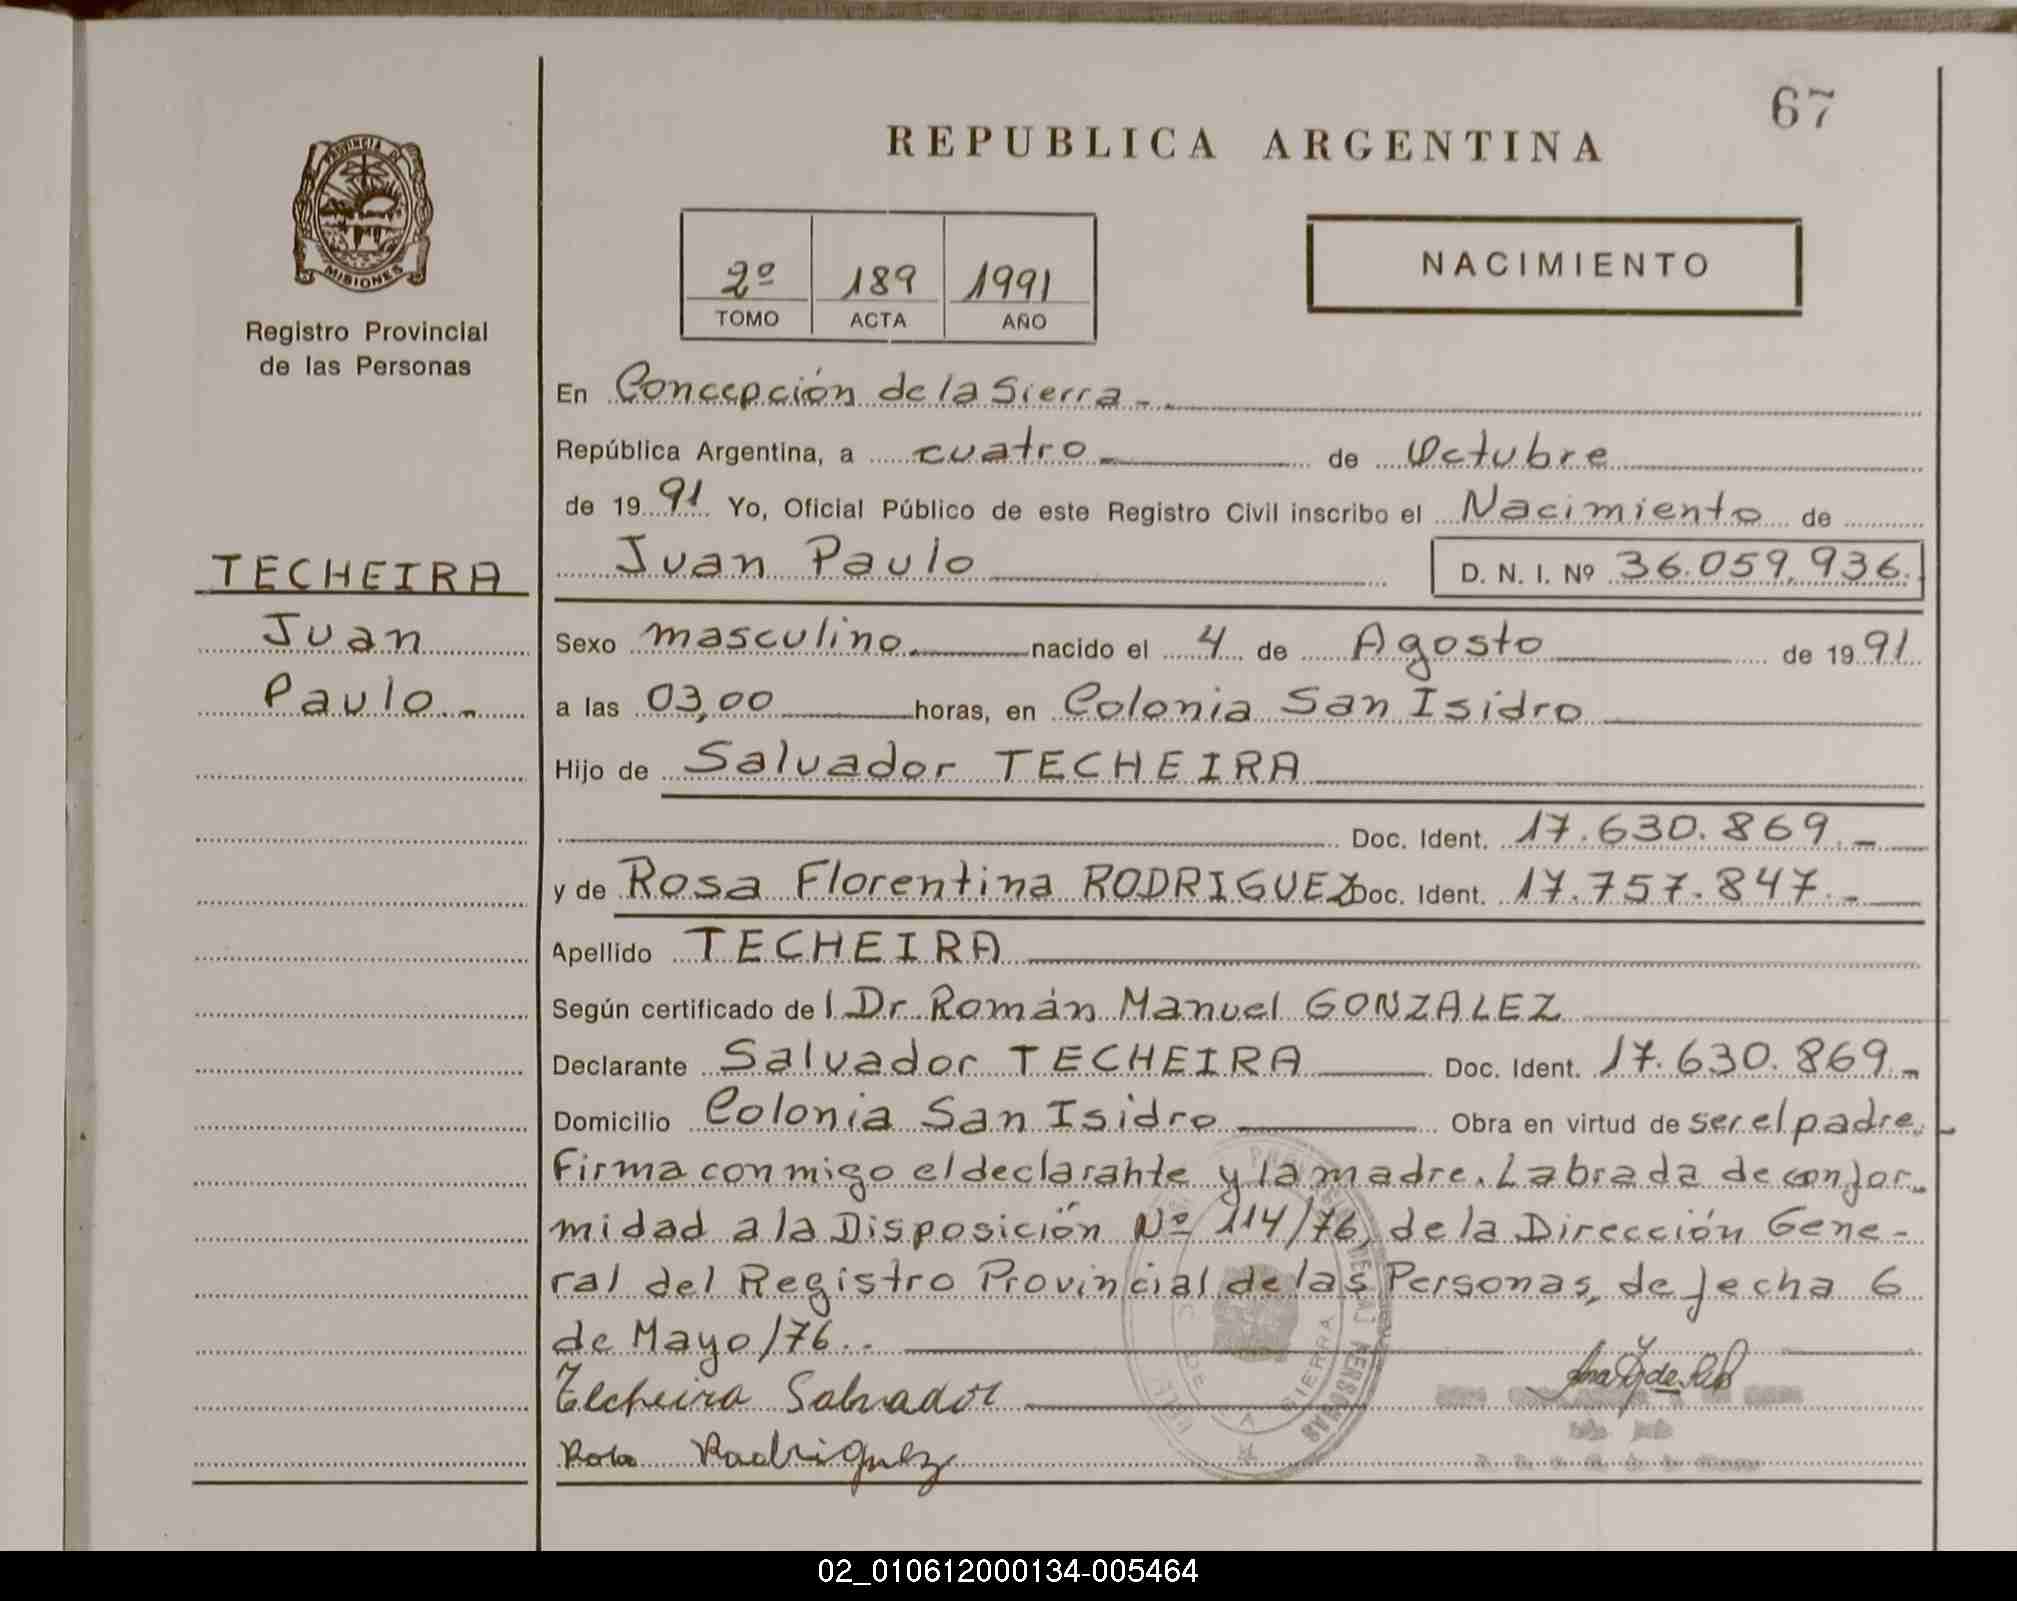 67
REPUBLICA ARGENTINA
PROVINCIA DE
MISIONES
Registro Provincial
de las Personas
2º 189 1991
TOMO ACTA AÑO
NACIMIENTO
En Concepción de la Sierra -.
República Argentina, a cuatro - de Octubre
de 19 91 Yo, Oficial Público de este Registro Civil inscribo el Nacimiento de
Juan Paulo D. N. I. Nº 36.059.936.
TECHEIRA
Juan
Paulo.-
Sexo masculino. nacido el 4 de Agosto de 19 91
a las 03,00 horas, en Colonia San Isidro
Hijo de Salvador TECHEIRA
Doc. Ident. 17.630.869.-
y de Rosa Florentina RODRIGUEZ Doc. Ident. 17.757.847.-
Apellido TECHEIRA
Según certificado de l Dr. Román Manuel GONZALEZ
Declarante Salvador TECHEIRA Doc. Ident. 17.630.869.-
Domicilio Colonia San Isidro Obra en virtud de ser el padre.-
Firma conmigo el declarante y la madre. Labrada de confor-
midad a la Disposición Nº 114/76, de la Dirección Gene-
ral del Registro Provincial de las Personas, de fecha 6
de Mayo/76..
Techeira Salvador
Rosa Rodriguez
DE LA SIERRA
PERSONAS
02_010612000134-005464